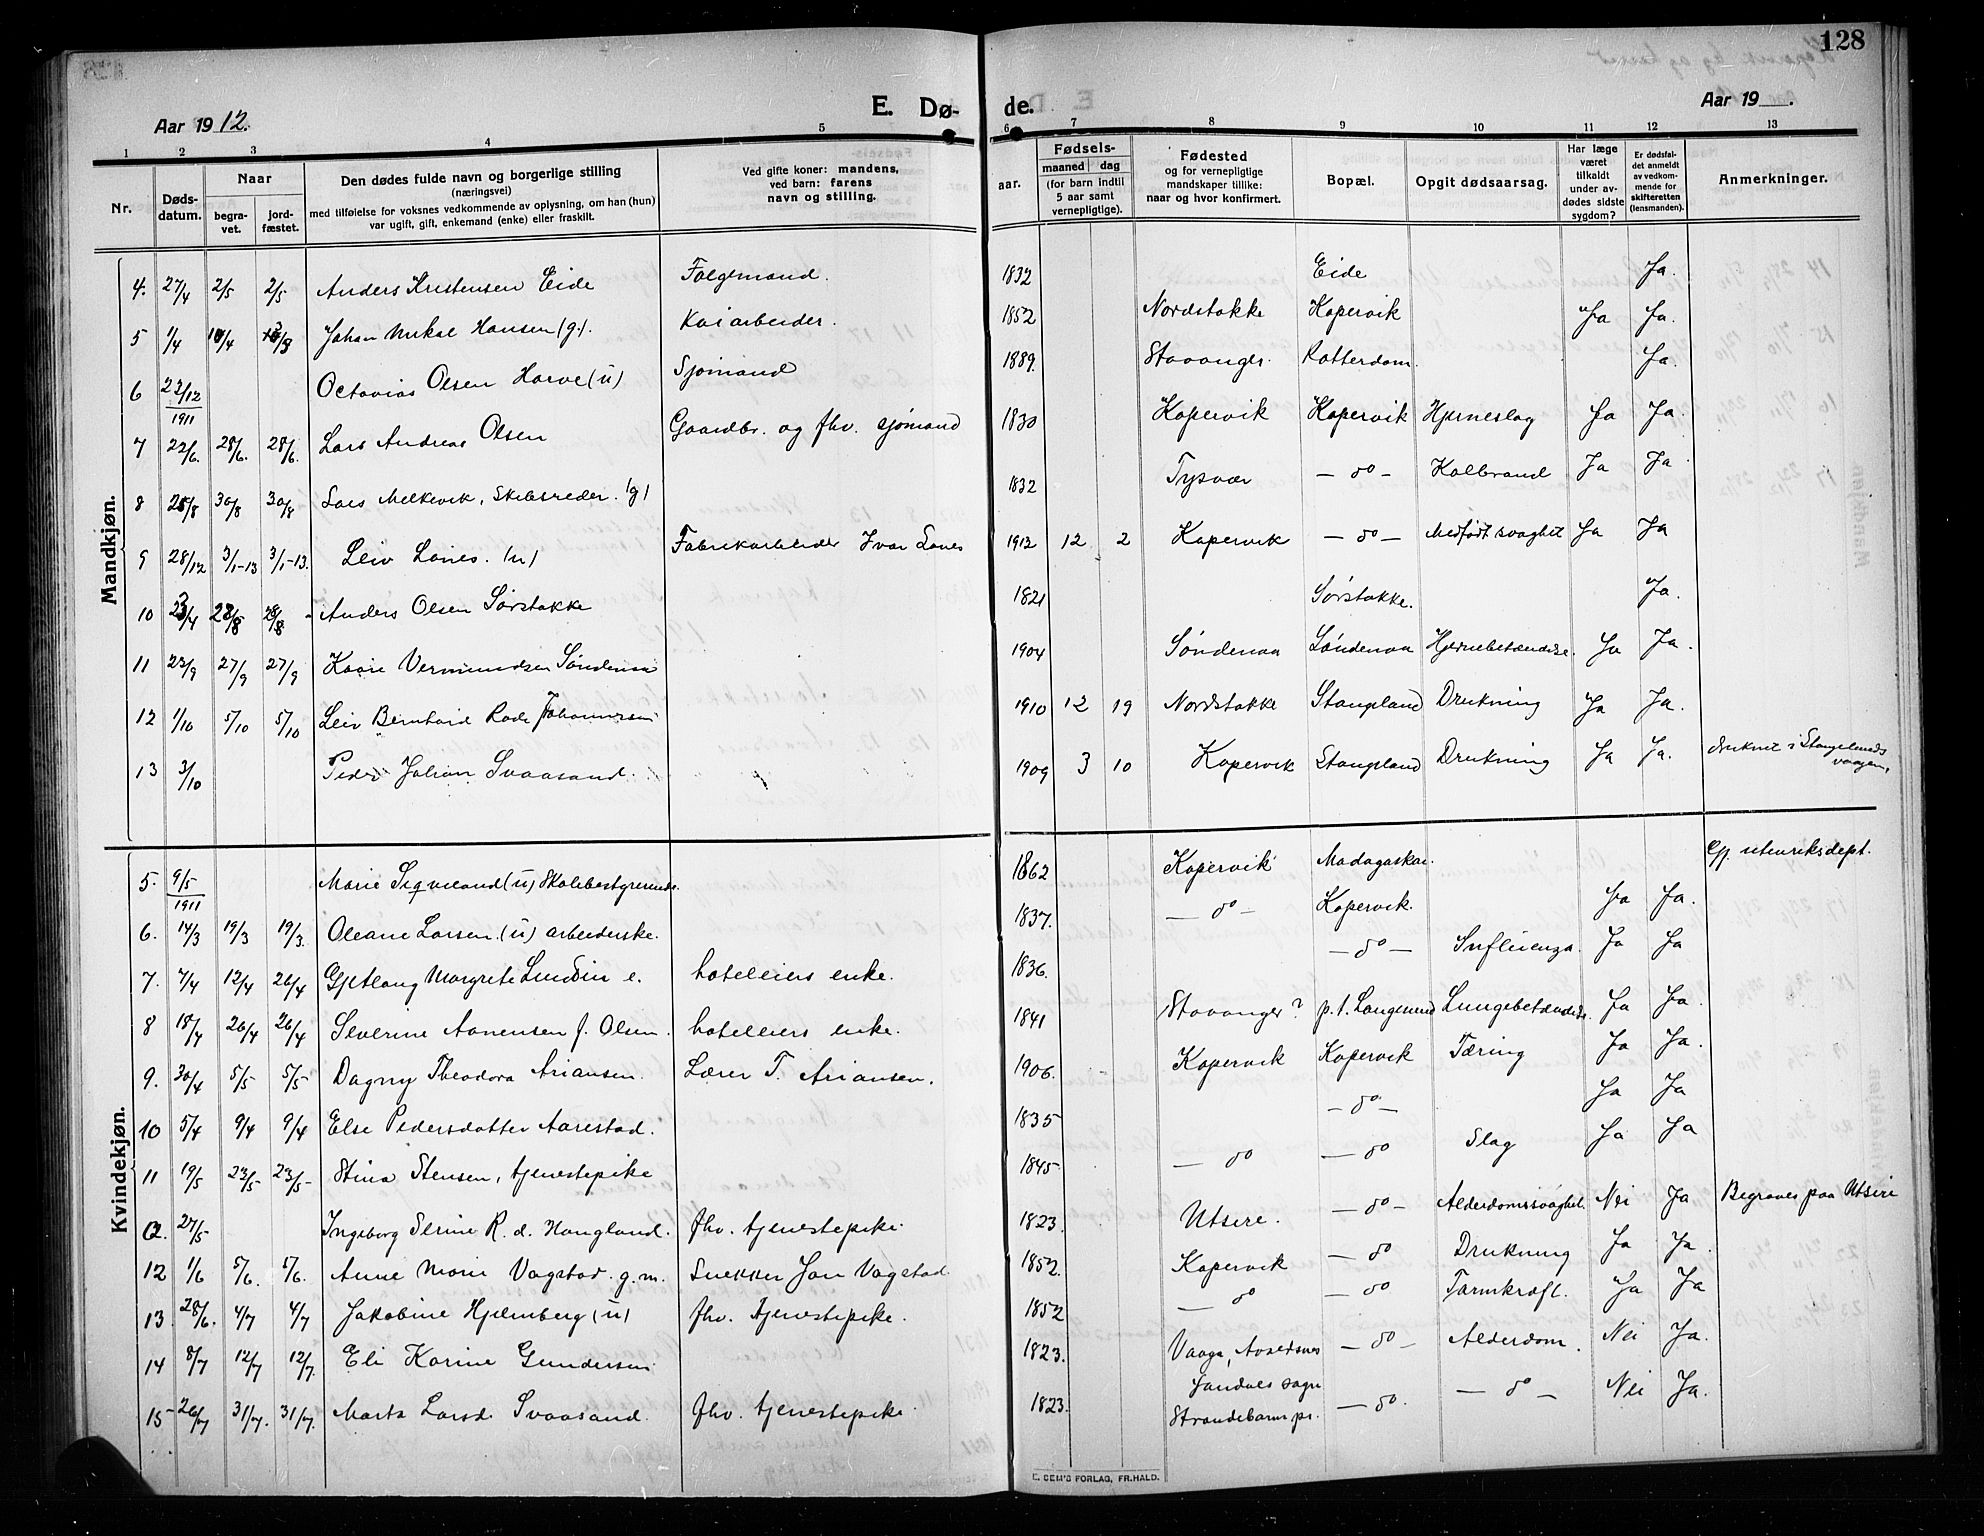 128
E. Dø- de.
Aar 1912.
Aar 19
1 2 3 4 5 6 7 8 9 10 11 12 13
Nr.
Døds-
datum.
Naar
begra-
vet.
jord-
fæstet.
Den dødes fulde navn og borgerlige stilling
(næringsvei)
med tilføielse for voksnes vedkommende av oplysning, om han (hun)
var ugift, gift, enkemand (enke) eller fraskilt.
Ved gifte koner: mandens,
ved barn: farens
navn og stilling.
Fødsels-
aar.
maaned dag
(for barn indtil
5 aar samt
vernepligtige).
Fødested
og for vernepligtige
mandskaper tillike:
naar og hvor konfirmert.
Bopæl.
Opgit dødsaarsag.
Har læge
været
tilkaldt
under av-
dødes sidste
sygdom?
Er dødsfal-
det anmeldt
av vedkom-
mende for
skifteretten
(lensmanden).
Anmerkninger.
Mandkjøn.
4. 27/4 2/5 2/5 Anders Kristensen Eide Følgemand. 1832 Eide Ja.
5 1/4 Johan Mikal Hansen (g). Kaiarbeider. 1852 Nordstokke Kopervik Ja Ja.
6 23/12 1911 Octavius Olsen Harve (u) Sjømand 1889. Stavanger. Rotterdam. Ja.
7 22/6. 28/6. 28/6. Lars Andreas Olsen Gaardbr. og fhv. sjømand 1830 Kopervik Kopervik Hjerneslag Ja Ja.
8 30/8 30/8 Lars Melkevik, Skibsreder. (g) 1832 Tysvær — do — Kolbrand Ja Ja
9 28/12 3/1-13 3/1-13. Leiv Lones. (u) Fabrikarbeider Ivar Lones 1912 12 2 Kopervik — do — Medfødt svaghet Ja Ja
10 Anders Olsen Sørstokke 1821 Sørstokke. Ja.
11 22/9 27/9 27/9 Kaare Vermundsen Søndenaa 1904 Søndenaa Søndenaa Hjernebetændelse. Ja Ja.
12 1/10 5/10 5/10 Leiv Bernhard Rode Johannessen 1910 12 19 Nordstokke Stangeland Drukning Ja Ja.
13 3/10 Peder Johan Svaasand. 1909 3 10 Kopervik Stangeland Drukning Ja Ja. druknet i Stangelands
vaagen.
Kvindekjøn.
5. 9/5 1911 Marie Sigveland (u) Skolebestyrerinde. 1862 Kopervik Madagaskar. Gj. utenriksdept.
6. 14/3 19/3 19/3. Oleane Larsen. (u) arbeiderske. 1837. — do — Kopervik. Ja Ja.
7. 7/4 12/4 26/4 Gjetlaug Margrete Lundin e. hoteleiers enke. 1836. — do — Influenza. Ja Ja
8 18/4 26/4 26/4 Severine Aanensen f. Olsen. hoteleiers enke. 1841 Stavanger? p.t. Langesund Lungebetændelse. Ja Ja.
9. 30/4 5/5 5/5 Dagny Theodora Ariansen. Lærer T. Ariansen. 1906. Kopervik Kopervik Tæring Ja Ja.
10 5/4 9/4 9/4 Else Pedersdatter Aarestad. 1835 — do — Ja Ja
11 19/5 23/5 23/5 Stina Stensen, tjenestepike 1845 — do — do Slag Ja Ja
a. 27/5 Ingeborg Serine R. d. Haugland. fhv. tjenestepike. 1823. Utsire. — do — Alderdomssvaghet. Nei Ja Begraves paa Utsire
12 1/6 5/6. 5/6. Anne Marie Vagstad. g.m. Snekker Jan Vagstad. 1852. Kopervik — do Drukning Ja Ja.
13. 28/6. 4/7 4/7 Jakobine Hjelmberg (u) fhv. tjenestepike. 1852 — do — do Tarmkræft. Ja Ja
14 8/7 12/7 12/7. Eli Karine Gundersen 1823. Vaaga, Avaldsnes — do — Alderdom. Nei Ja.
15 26/7 31/7. 31/7. Marta Larsd. Svaasand. fhv. tjenestepike. 1823. Jondals sogn
Strandebarm pr. — do. — do — Nei Ja.
E. SEM'S FORLAG, FR.HALD.